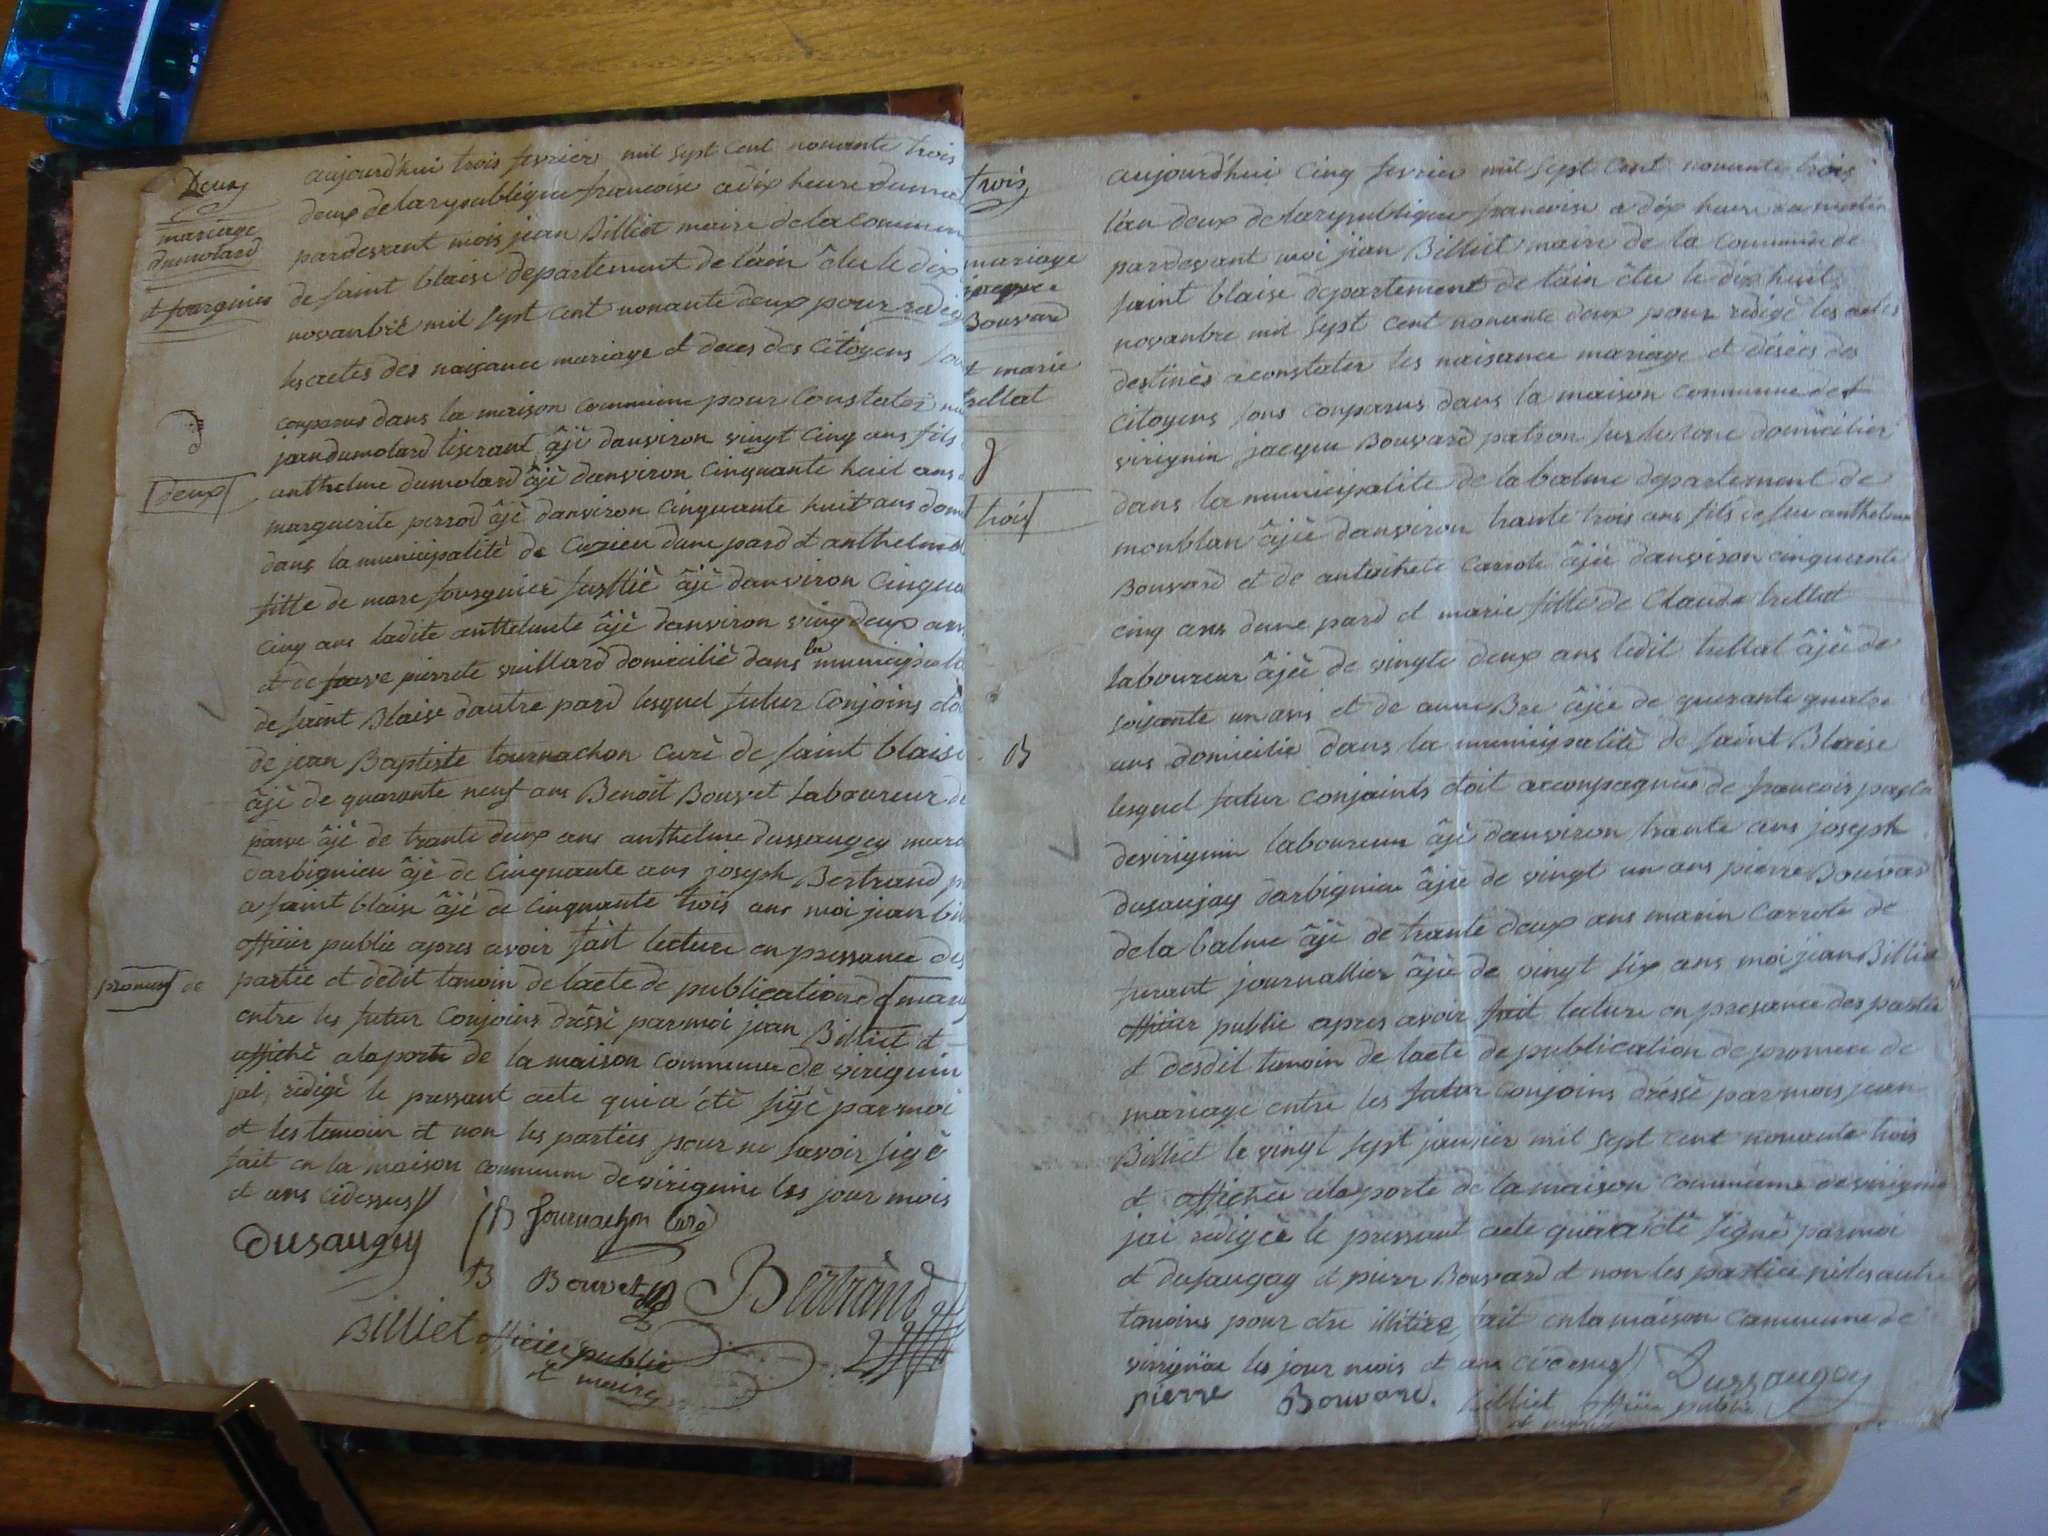 Deux
mariage
dumolard
et fourquier
deux
aujourd'hui trois fevrier mil sept cent nonante trois
deux de la rypublique francoise a dix heure du
pardevant mois jean Billiet maire de la commun
de saint blaise departement de lâin êlu le dix
novanbre mil sept cent nonante deux pour redig
les actes des naisance mariage et deces des citoyens
conparus dans la maison commune pour Constater
jean dumolard tiserant âjè danviron vingt cinq ans fils
anthelme dumolard âjè danviron cinquante huit ans
marguerite perrod âjè danviron cinquante huit ans dom
dans la municipalitè de Cuzieu dune pard et anthelm
fille de marc fourquier âjè danviron Cinqua
cinq ans ladite anthelmte âjè danviron ving deux ans
et de pierrete vuillard domiciliè dans la municipali
de saint Blaise dautre pard lesquel futur Conjoins
de jean Baptiste tournachon curè de saint blaise
âjè de quarante neuf ans Benoit Bouvet laboureur de
parve âjè de trante deux ans anthelme dussaugey
darbignieu âjè de Cinquante ans joseph Bertrand
a saint blaise âjè de cinquante trois ans moi jean bil
officier public apres avoir fait lecture en pressance des
promes de partie et dedit tamoin de lacte de publication de mari
entre les futur Conjoins drèssè par moi jean Billiet et
affichè a la porte de la maison commune de virignin
jai redigè le pressant acte qui a étè sigè par moi
et les tamoin et non les parties pour ne savoir sigè
fait en la maison commune de virignin les jour mois
et ans cidessus
Dusaugey
JB tournachon curè
B Bouvet
Bertrand
Billiet officier public
et maire
trois
mariage
jacque
Bouvard
et marie
trellat
trois
B
aujourd'hui cinq fevrier mil sept cent nonante trois
l'an deux de la rypublique francoise a dix heure du matin
pardevant moi jean Billiet maire de la commune de
saint blaise departement de lâin êlu le dix huit
novanbre mil sept cent nonante deux pour redigè les actes
destinès a constater les naisance mariage et désées des
citoyens sons conparus dans la maison commune de
virignin jacque Bouvard patron sur le rone domicilier
dans la municipalite de la balme departement de
monblan âjèe danviron trante trois ans fils de feu anthelme
Bouvard et de antoinete carrote âjèe danviron cinquante
cinq ans dune pard et marie fille de Claude trellat
laboureur âjèe de vingte deux ans ledit trellat âjèe de
soisante un ans et de anne Bre âjèe de quarante quatre
ans domicilie dans la municipalitè de saint Blaise
lesquel futur conjoints étoit acconpagnès de francois
de virignin laboureur âjè danviron trante ans joseph
dusaujay darbignieu âjèe de vingt un ans pierre Bouvard
de la balme âjè de trante deux ans marin carrote de
furant journallier âjèe de vingt six ans moi jean Billiet
officier public apres avoir fait lecture en presance des partie
et desdit tamoin de lacte de publication de promece de
mariage entre les futur conjoins dréssè par mois jean
Billiet le vingt sept janvier mil sept cent nonante trois
et affichèe a la porte de la maison commune de virignin
jai redigèe le pressant acte qui a étè signè par moi
et dusaugay et pierr Bouvard et non les partie ni les autre
tamoins pour etre fait en la maison commune de
virignin les jour mois et ans cidessus
pierre Bouvard. Billiet officier public Dussaugey
et maire